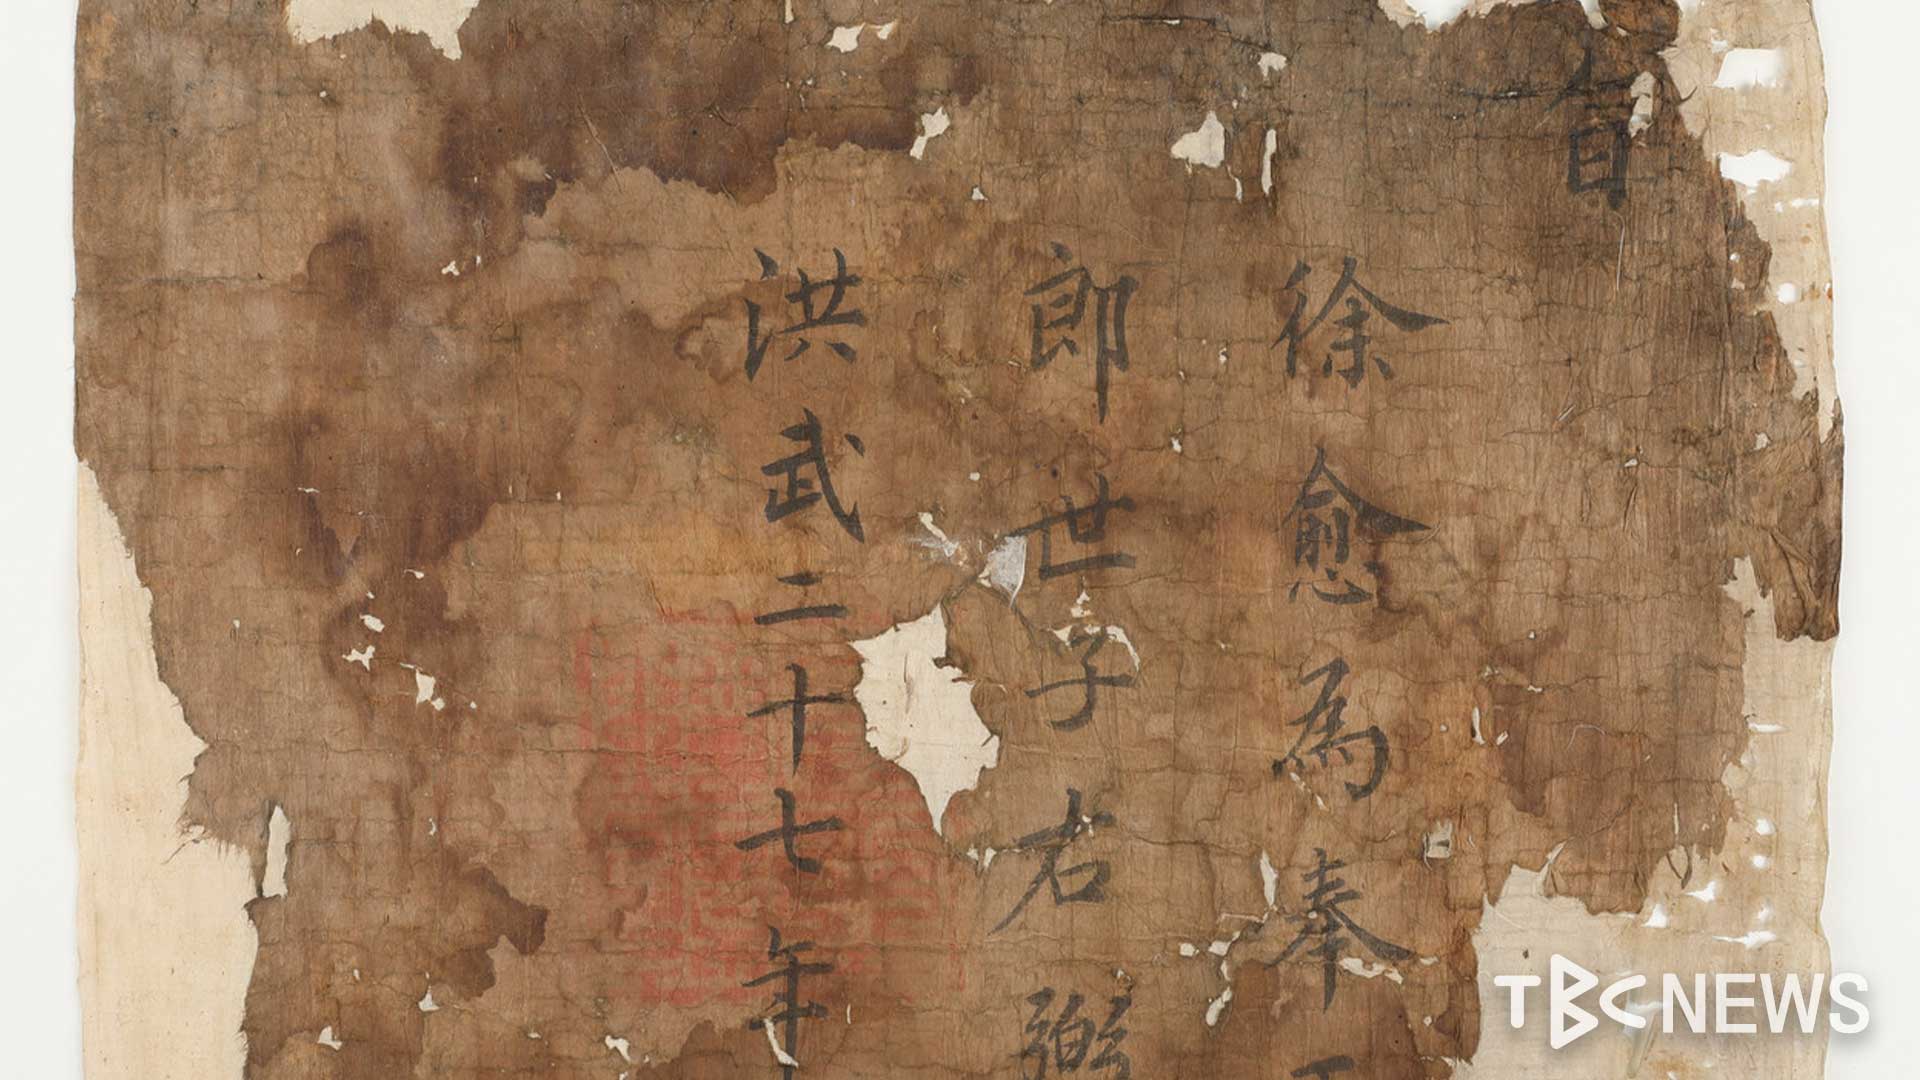 旨
徐愈為奉
郎世子右弼
洪武二十七年
TBC NEWS